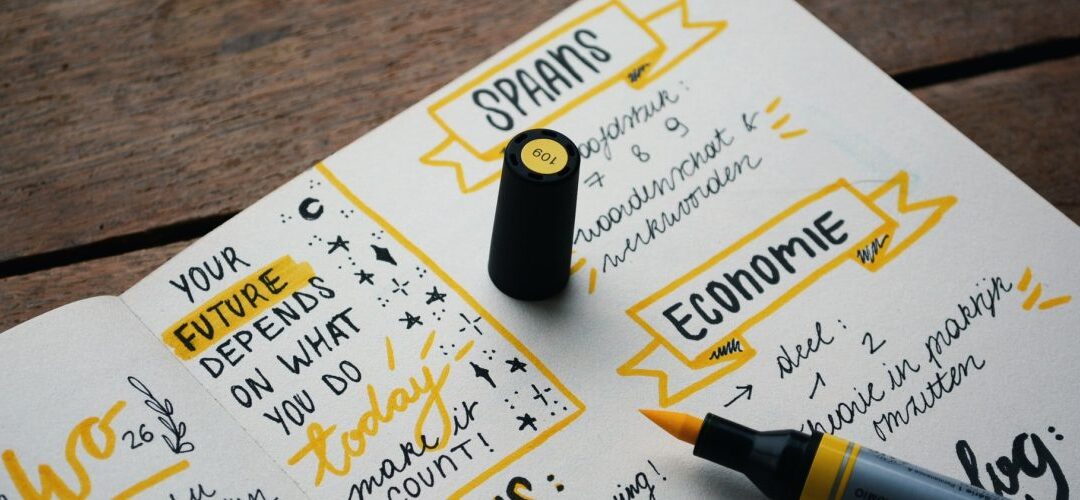 wo
26
YOUR
FUTURE
DEPENDS
ON WHAT
YOU DO
today
make it
COUNT!
SPAANS
7 8 9
woordenschat &
werkwoorden
109
ECONOMIE
→ deel:
1 2
theorie in praktijk
omzetten